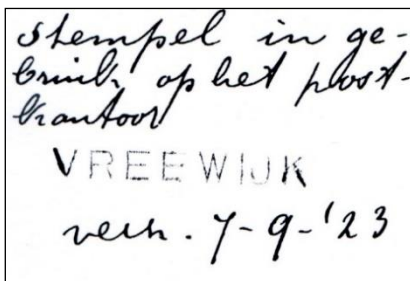 Stempel in ge-
bruik op het post-
kantoor
VREEWIJK
verk. 7-9-'23